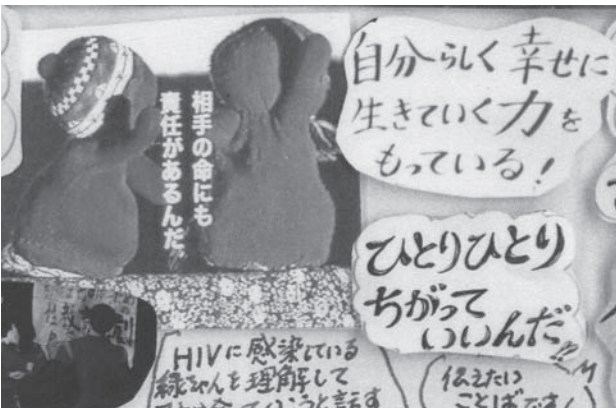 相手の命にも
責任があるんだ
自分らしく幸せに
生きていく力を
もっている！
ひとりひとり
ちがって
いいんだ!!
HIVに感染している
緑ちゃんを理解して
伝えたい
ことばです！